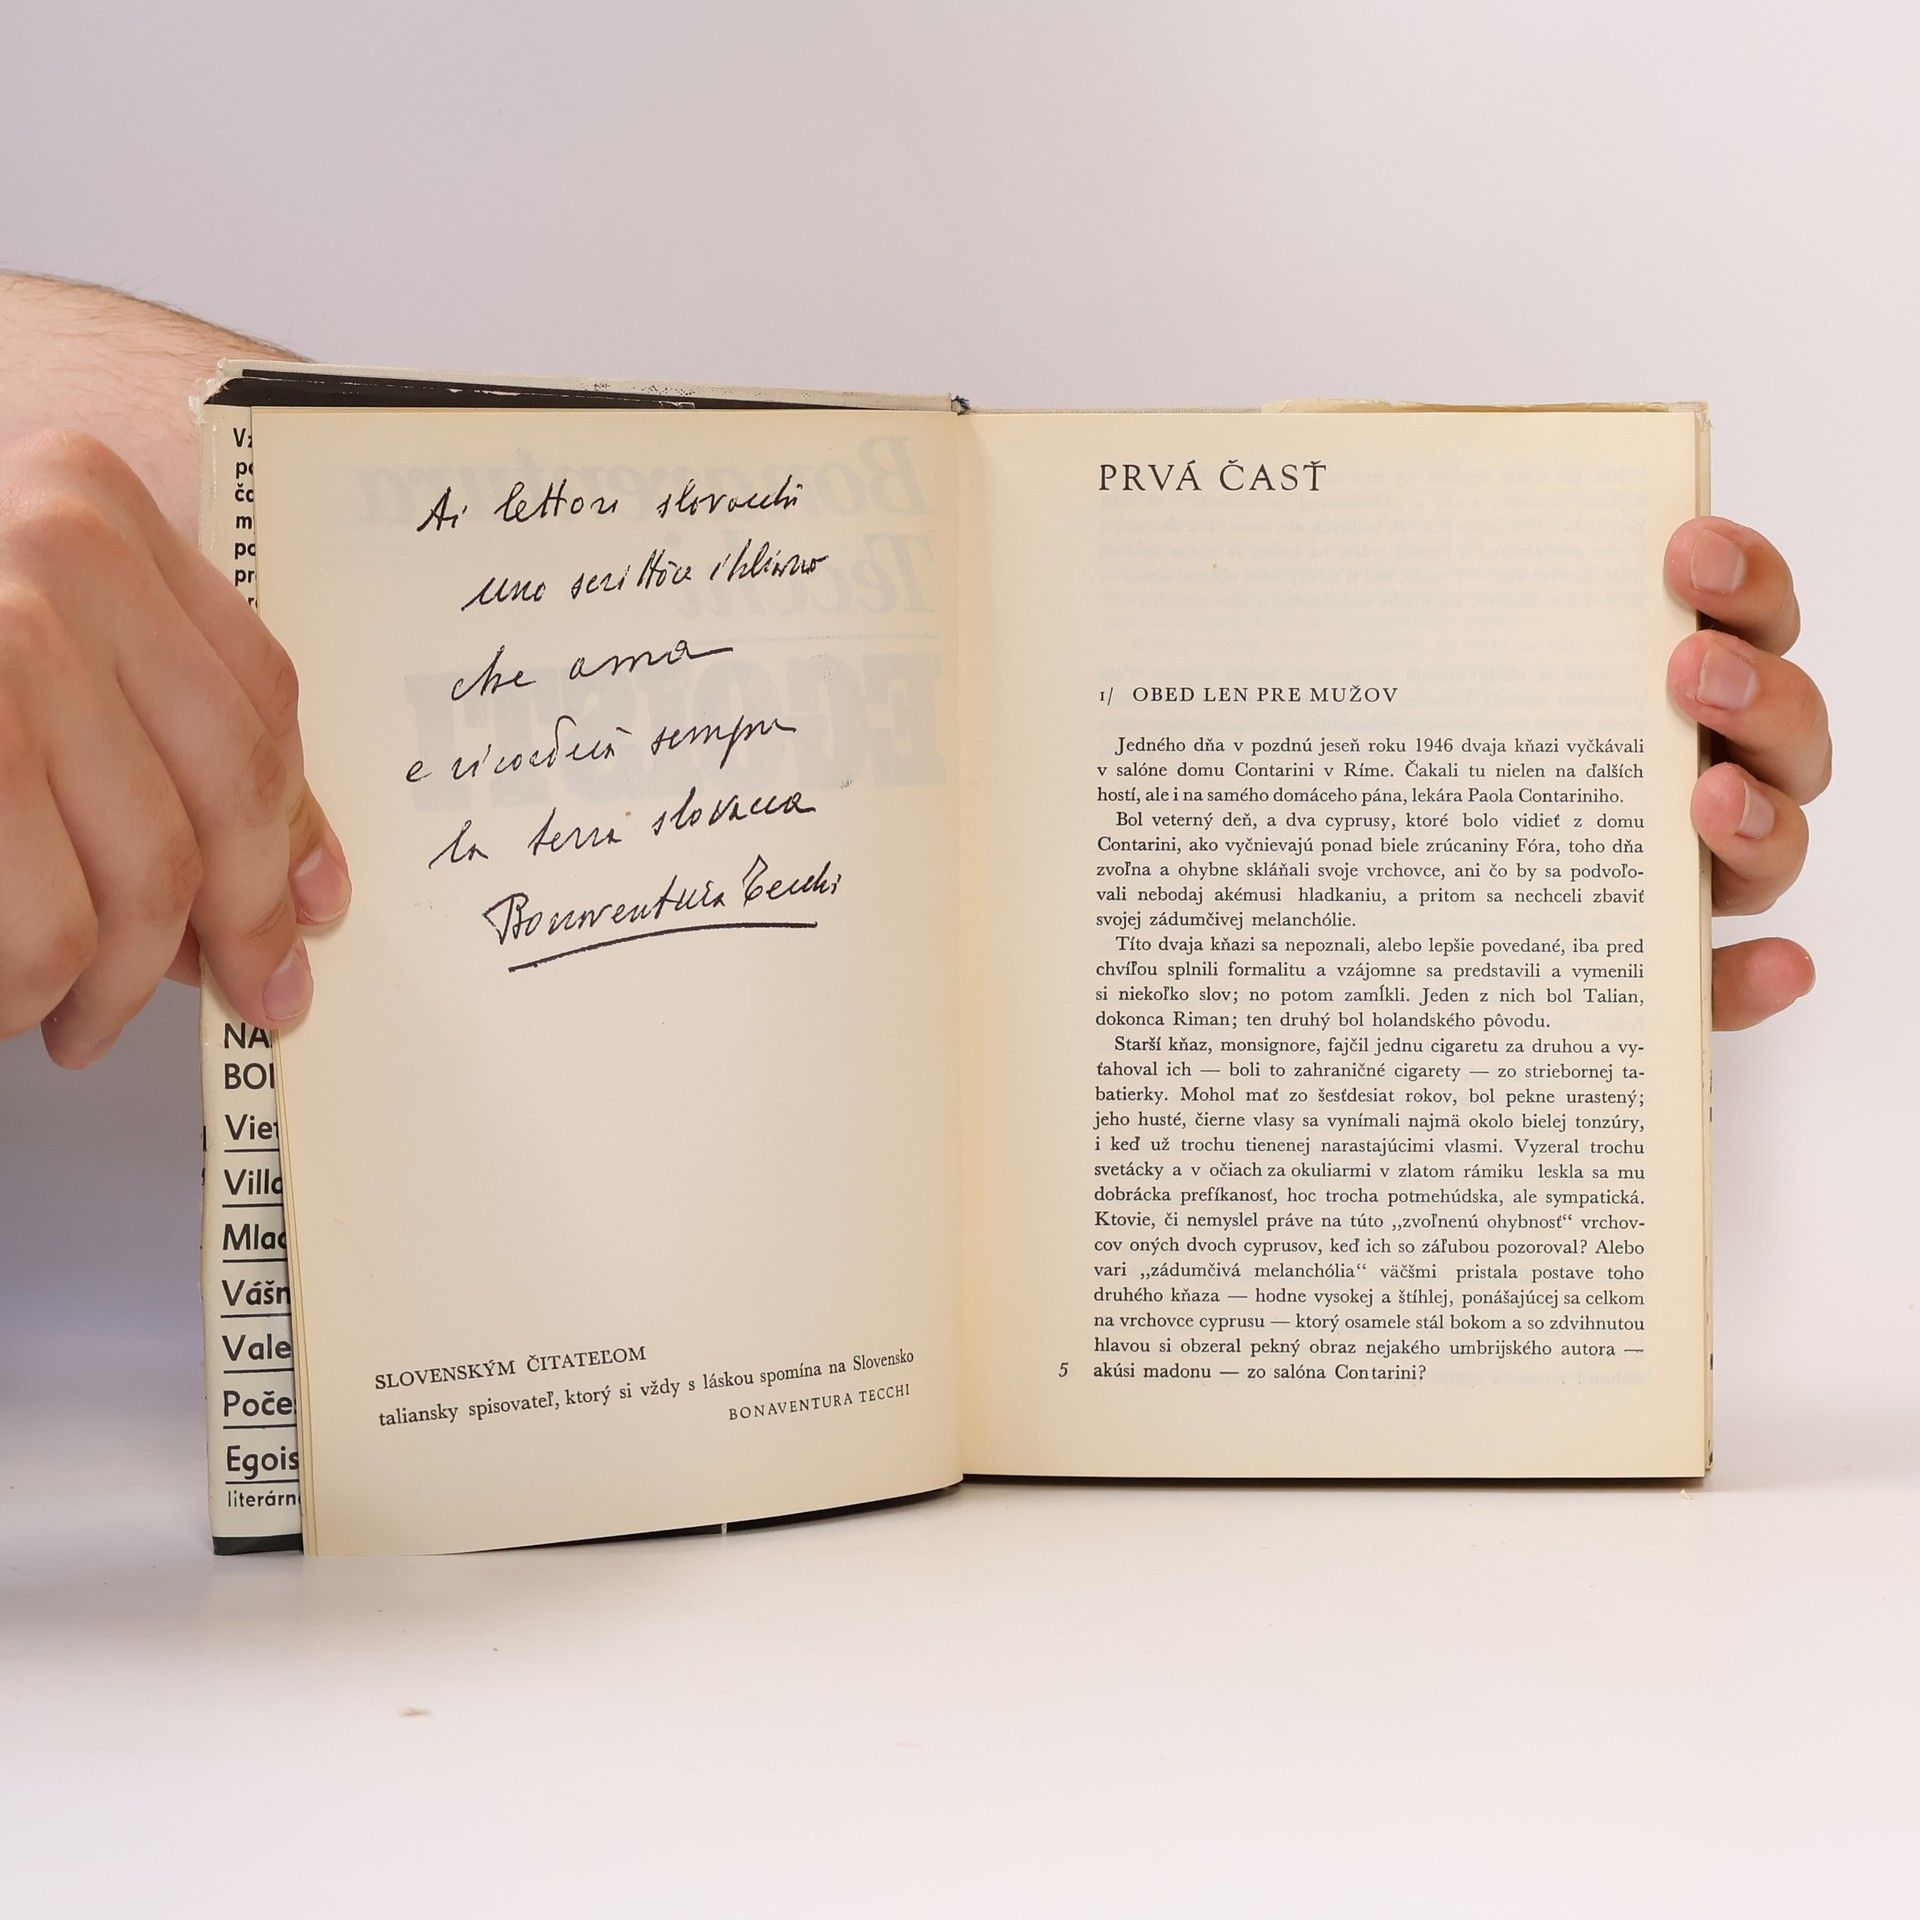 Ai lettori slovacchi
uno scrittore italiano
che ama
e ricorderà sempre
la terra slovacca
Bonaventura Tecchi
SLOVENSKÝM ČITATEĽOM
taliansky spisovateľ, ktorý si vždy s láskou spomína na Slovensko
BONAVENTURA TECCHI
NA
BO
Viet
Villa
Mlad
Vášn
Vale
Poče
Egois
literárn
PRVÁ ČASŤ
1/ OBED LEN PRE MUŽOV
Jedného dňa v pozdnú jeseň roku 1946 dvaja kňazi vyčkávali
v salóne domu Contarini v Ríme. Čakali tu nielen na ďalších
hostí, ale i na samého domáceho pána, lekára Paola Contariniho.
Bol veterný deň, a dva cyprusy, ktoré bolo vidieť z domu
Contarini, ako vyčnievajú ponad biele zrúcaniny Fóra, toho dňa
zvoľna a ohybne skláňali svoje vrchovce, ani čo by sa podvoľo-
vali nebodaj akémusi hladkaniu, a pritom sa nechceli zbaviť
svojej zádumčivej melanchólie.
Títo dvaja kňazi sa nepoznali, alebo lepšie povedané, iba pred
chvíľou splnili formalitu a vzájomne sa predstavili a vymenili
si niekoľko slov; no potom zamĺkli. Jeden z nich bol Talian,
dokonca Riman; ten druhý bol holandského pôvodu.
Starší kňaz, monsignore, fajčil jednu cigaretu za druhou a vy-
ťahoval ich — boli to zahraničné cigarety — zo striebornej ta-
batierky. Mohol mať zo šesťdesiat rokov, bol pekne urastený;
jeho husté, čierne vlasy sa vynímali najmä okolo bielej tonzúry,
i keď už trochu tienenej narastajúcimi vlasmi. Vyzeral trochu
svetácky a v očiach za okuliarmi v zlatom rámiku leskla sa mu
dobrácka prefíkanosť, hoc trocha potmehúdska, ale sympatická.
Ktovie, či nemyslel práve na túto „zvoľnenú ohybnosť“ vrchov-
cov oných dvoch cyprusov, keď ich so záľubou pozoroval? Alebo
vari „zádumčivá melanchólia“ väčšmi pristala postave toho
druhého kňaza — hodne vysokej a štíhlej, ponášajúcej sa celkom
na vrchovce cyprusu — ktorý osamele stál bokom a so zdvihnutou
hlavou si obzeral pekný obraz nejakého umbrijského autora —
5 akúsi madonu — zo salóna Contarini?